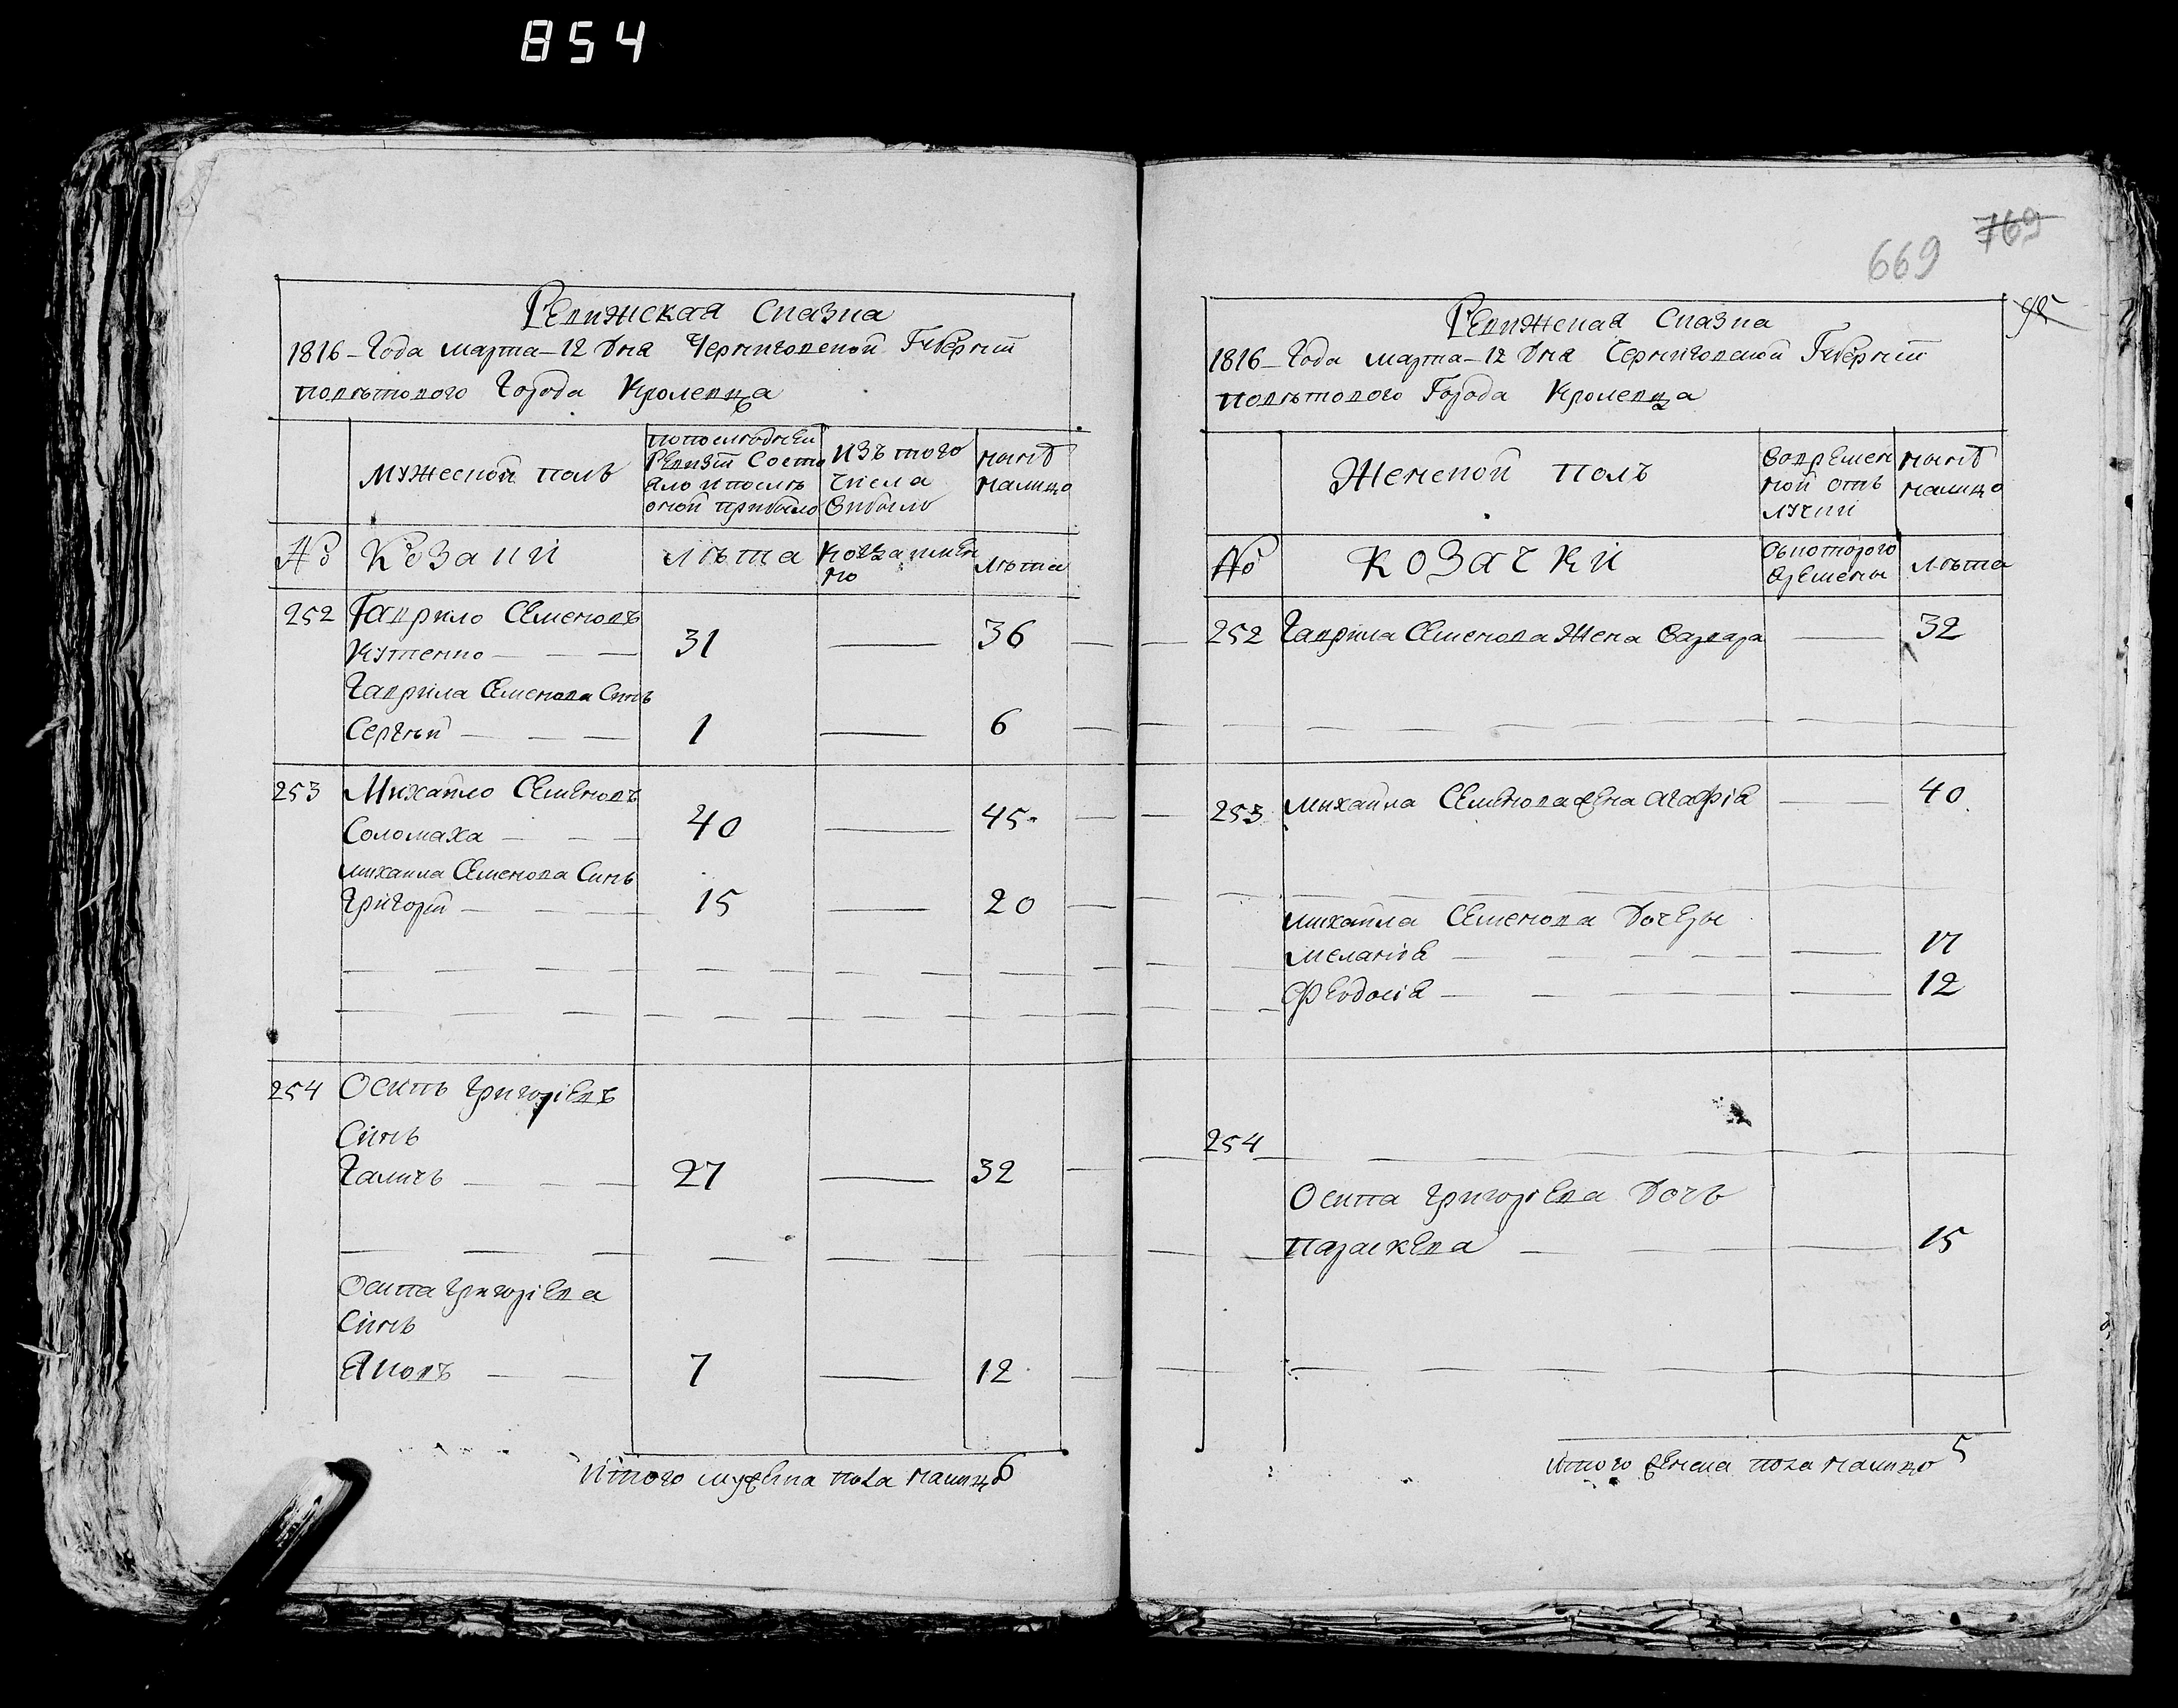 854
669
769
95
Ревижская Сказка
1816 – Года марта – 12 Дня Черниговской Губернии
поветового Города Кролевца
Мужеской полъ
по последней
Ревизии состо
яло и после
оной прибыло
Изъ того
числа
выбыло
ныне
налицо
№
Козаки
лета
Когда имен
но
лета
252 Гаврило Семеновъ
Кутенко 31 — 36
Гаврила Семенова Синъ
Сергѣй 1 — 6
253 Михайло Семеновъ
Соломаха 40 — 45
Михаила Семенова Синъ
Григорий 15 — 20
254 Осипъ Григоріевъ
Синъ
Галичъ 27 — 32
Осипа Григоріева
Синъ
Яковъ 7 — 12
Итого мужеска пола налицо 6
Ревижская Сказка
1816 – Года марта – 12 Дня Черниговской Губернии
поветового Города Кролевца
Женской полъ
Во времен
ной отъ
лучки
ныне
налицо
№
Козачки
Съ которого
времены
лета
252 Гаврила Семенова Жена Варвара — 32
253 Михайла Семенова жена Агафія — 40
Михайла Семенова Дочеры
Меланія — 17
Феодосія — 12
254
Осипа Григоріева Дочъ
Параскева — 15
Итого женска пола налицо 5